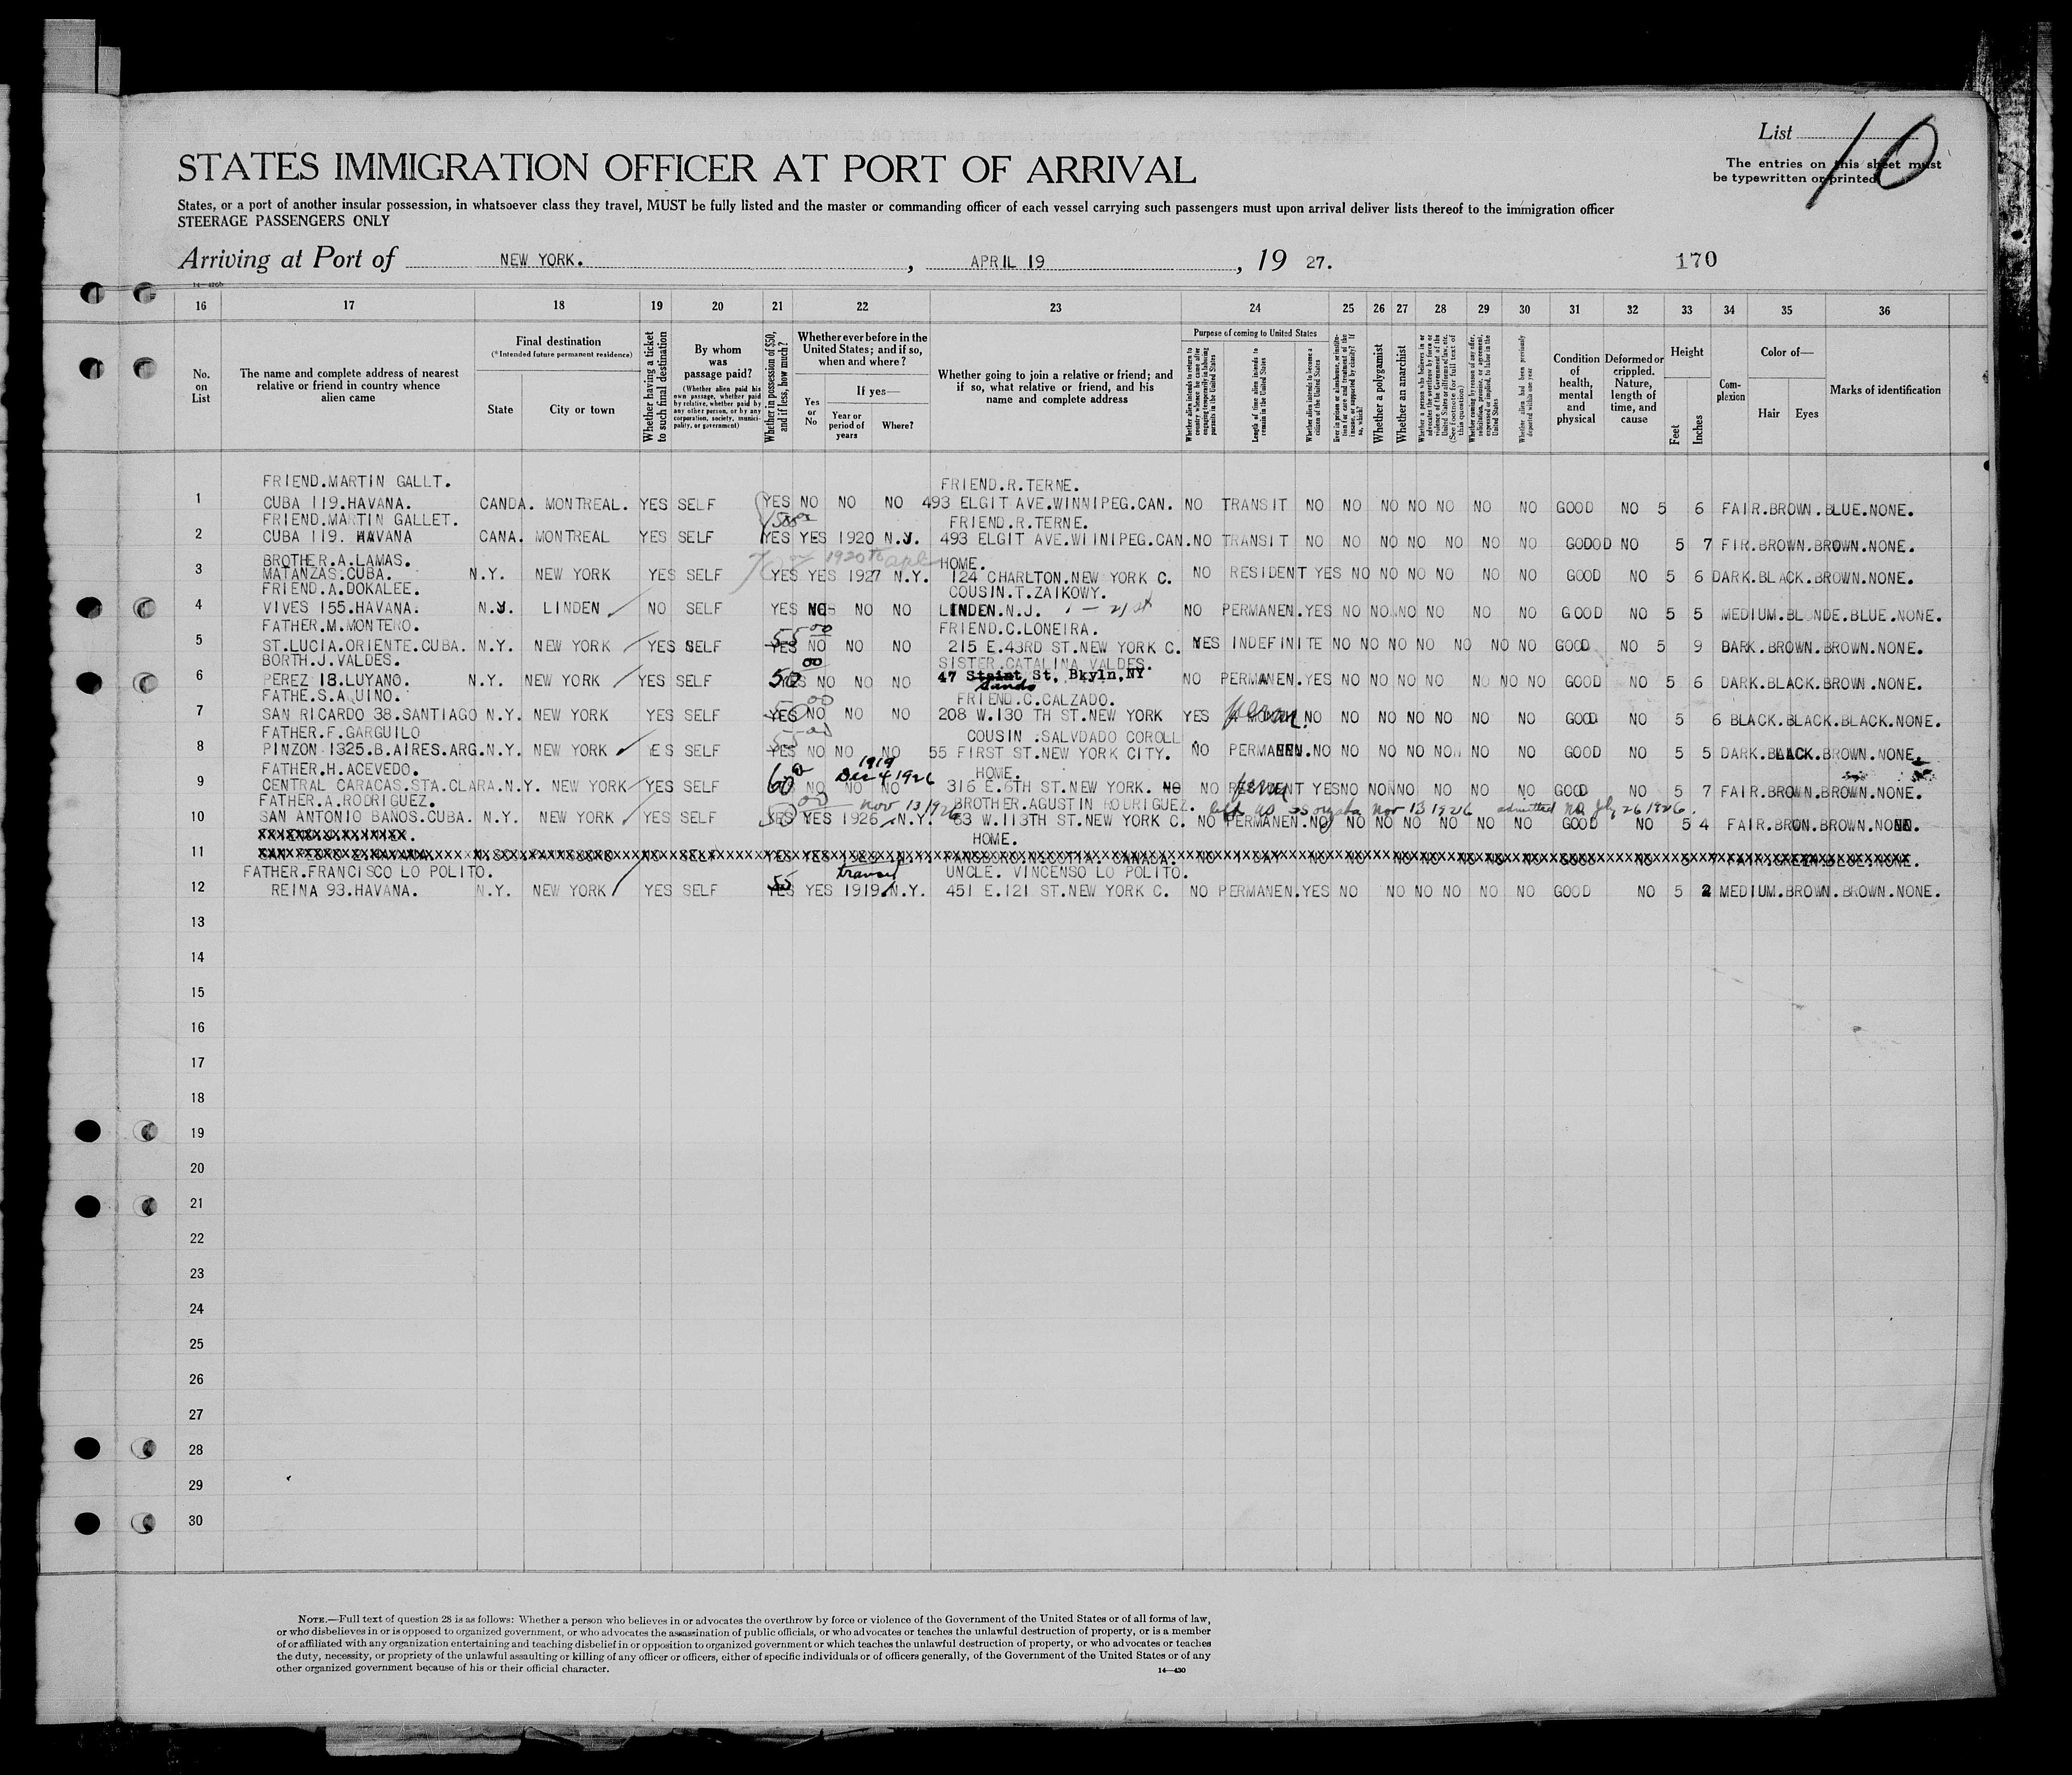 List 10
STATES IMMIGRATION OFFICER AT PORT OF ARRIVAL
The entries on this sheet must
be typewritten or printed
States, or a port of another insular possession, in whatsoever class they travel, MUST be fully listed and the master or commanding officer of each vessel carrying such passengers must upon arrival deliver lists thereof to the immigration officer
STEERAGE PASSENGERS ONLY
Arriving at Port of NEW YORK. , APRIL 19 , 19 27.
170
16 17 18 19 20 21 22 23 24 25 26 27 28 29 30 31 32 33 34 35 36
No. on List
The name and complete address of nearest relative or friend in country whence alien came
Final destination
(*Intended future permanent residence)
State
City or town
Whether having a ticket to such final destination
By whom was passage paid?
(Whether alien paid his own passage, whether paid by relative, whether paid by any other person, or by any corporation, society, municipality, or government)
Whether in possession of $50, and if less, how much?
Whether ever before in the United States; and if so, when and where?
Yes or No
If yes—
Year or period of years
Where?
Whether going to join a relative or friend; and if so, what relative or friend, and his name and complete address
Purpose of coming to United States
Whether alien intends to return to country whence he came after engaging temporarily in laboring pursuits in the United States
Length of time alien intends to remain in the United States
Whether alien intends to become a citizen of the United States
Whether a polygamist
Whether an anarchist
Condition of health, mental and physical
Deformed or crippled. Nature, length of time, and cause
Height
Feet
Inches
Complexion
Color of—
Hair
Eyes
Marks of identification
FRIEND.MARTIN GALLT. FRIEND.R.TERNE.
1 CUBA 119.HAVANA. CANDA. MONTREAL. YES SELF YES NO NO NO 493 ELGIT AVE.WINNIPEG.CAN. NO TRANSIT NO NO NO NO NO NO NO GOOD NO 5 6 FAIR.BROWN.BLUE.NONE.
FRIEND.MARTIN GALLET. FRIEND.R.TERNE.
2 CUBA 119. HAVANA CANA. MONTREAL YES SELF YES YES 1920 N.J. 493 ELGIT AVE.WIINIPEG.CAN.NO TRANSIT NO NO NO NO NO NO NO GODOD NO 5 7 FIR.BROWN.BROWN.NONE.
BROTHER.A.LAMAS. HOME.
3 MATANZAS.CUBA. N.Y. NEW YORK YES SELF YES YES 1927 N.Y. 124 CHARLTON.NEW YORK C. NO RESIDENT YES NO NO NO NO NO NO GOOD NO 5 6 DARK.BLACK.BROWN.NONE.
FRIEND.A.DOKALEE. COUSIN.T.ZAIKOWY.
4 VIVES 155.HAVANA. N.J. LINDEN NO SELF YES NO NO NO LINDEN.N.J. NO PERMANEN.YES NO NO NO NO NO NO GOOD NO 5 5 MEDIUM.BLONDE.BLUE.NONE.
FATHER.M.MONTERO. 55 00 FRIEND.C.LONEIRA.
5 ST.LUCIA.ORIENTE.CUBA. N.Y. NEW YORK YES SELF YES NO NO NO 215 E.43RD ST.NEW YORK C. YES INDEFINITE NO NO NO NO NO NO NO GOOD NO 5 9 BARK.BROWN.BROWN.NONE.
BORTH.J.VALDES. 00 SISTER.CATALINA VALDES.
6 PEREZ 18.LUYANO. N.Y. NEW YORK YES SELF 50 YES NO NO NO 47 Staint St, Bkyln,NY NO PERMANEN.YES NO NO NO NO NO NO NO GOOD NO 5 6 DARK.BLACK.BROWN.NONE.
Sands
FATHE.S.AQUINO. 50 00 FRIEND.C.CALZADO.
7 SAN RICARDO 38.SANTIAGO N.Y. NEW YORK YES SELF YES NO NO NO 208 W.130 TH ST.NEW YORK YES NO NO NO NO NO NO NO GOOD NO 5 6 BLACK.BLACK.BLACK.NONE.
FATHER.F.GARGUILO COUSIN.SALVDADO COROLL
8 PINZON 1325.B.AIRES.ARG.N.Y. NEW YORK ES SELF YES NO NO NO 55 FIRST ST.NEW YORK CITY. NO PERMANEN.NO NO NO NO NO NO NO GOOD NO 5 5 DARK.BLACK.BROWN.NONE.
FATHER.H.ACEVEDO. 1919 Dec 4 1926 HOME.
9 CENTRAL CARACAS.STA.CLARA.N.Y. NEW YORK YES SELF 60 NO NO NO 316 E.6TH ST.NEW YORK. NO NO YES NO NO NO NO NO NO GOOD NO 5 7 FAIR.BROWN.BROWN.NONE.
FATHER.A.RODRIGUEZ. Nov 13/1926 BROTHER.AGUSTIN RODRIGUEZ. Nov 13 1926 admitted July 26 1926
10 SAN ANTONIO BANOS.CUBA. N.Y. NEW YORK YES SELF YES YES 1926 N.Y. 63 W.113TH ST.NEW YORK C. NO PERMANEN.NO NO NO NO NO NO NO GOOD NO 5 4 FAIR.BRON.BROWN.NONE.
HOME.
11
FATHER.FRANCISCO LO POLITO. transit UNCLE. VINCENSO LO POLITO.
12 REINA 93.HAVANA. N.Y. NEW YORK YES SELF 55 YES YES 1919 N.Y. 451 E.121 ST.NEW YORK C. NO PERMANEN.YES NO NO NO NO NO NO GOOD NO 5 2 MEDIUM.BROWN.BROWN.NONE.
13
14
15
16
17
18
19
20
21
22
23
24
25
26
27
28
29
30
NOTE.—Full text of question 28 is as follows: Whether a person who believes in or advocates the overthrow by force or violence of the Government of the United States or of all forms of law,
or who disbelieves in or is opposed to organized government, or who advocates the assassination of public officials, or who advocates or teaches the unlawful destruction of property, or is a member
of or affiliated with any organization entertaining and teaching disbelief in or opposition to organized government or which teaches the unlawful destruction of property, or who advocates or teaches
the duty, necessity, or propriety of the unlawful assaulting or killing of any officer or officers, either of specific individuals or of officers generally, of the Government of the United States or of any
other organized government because of his or their official character.
14—430